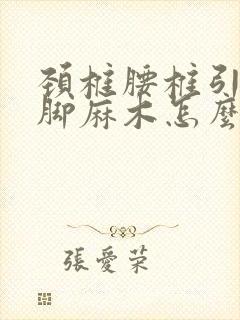 頚椎腰椎引
脚麻木怎麼
張愛荣